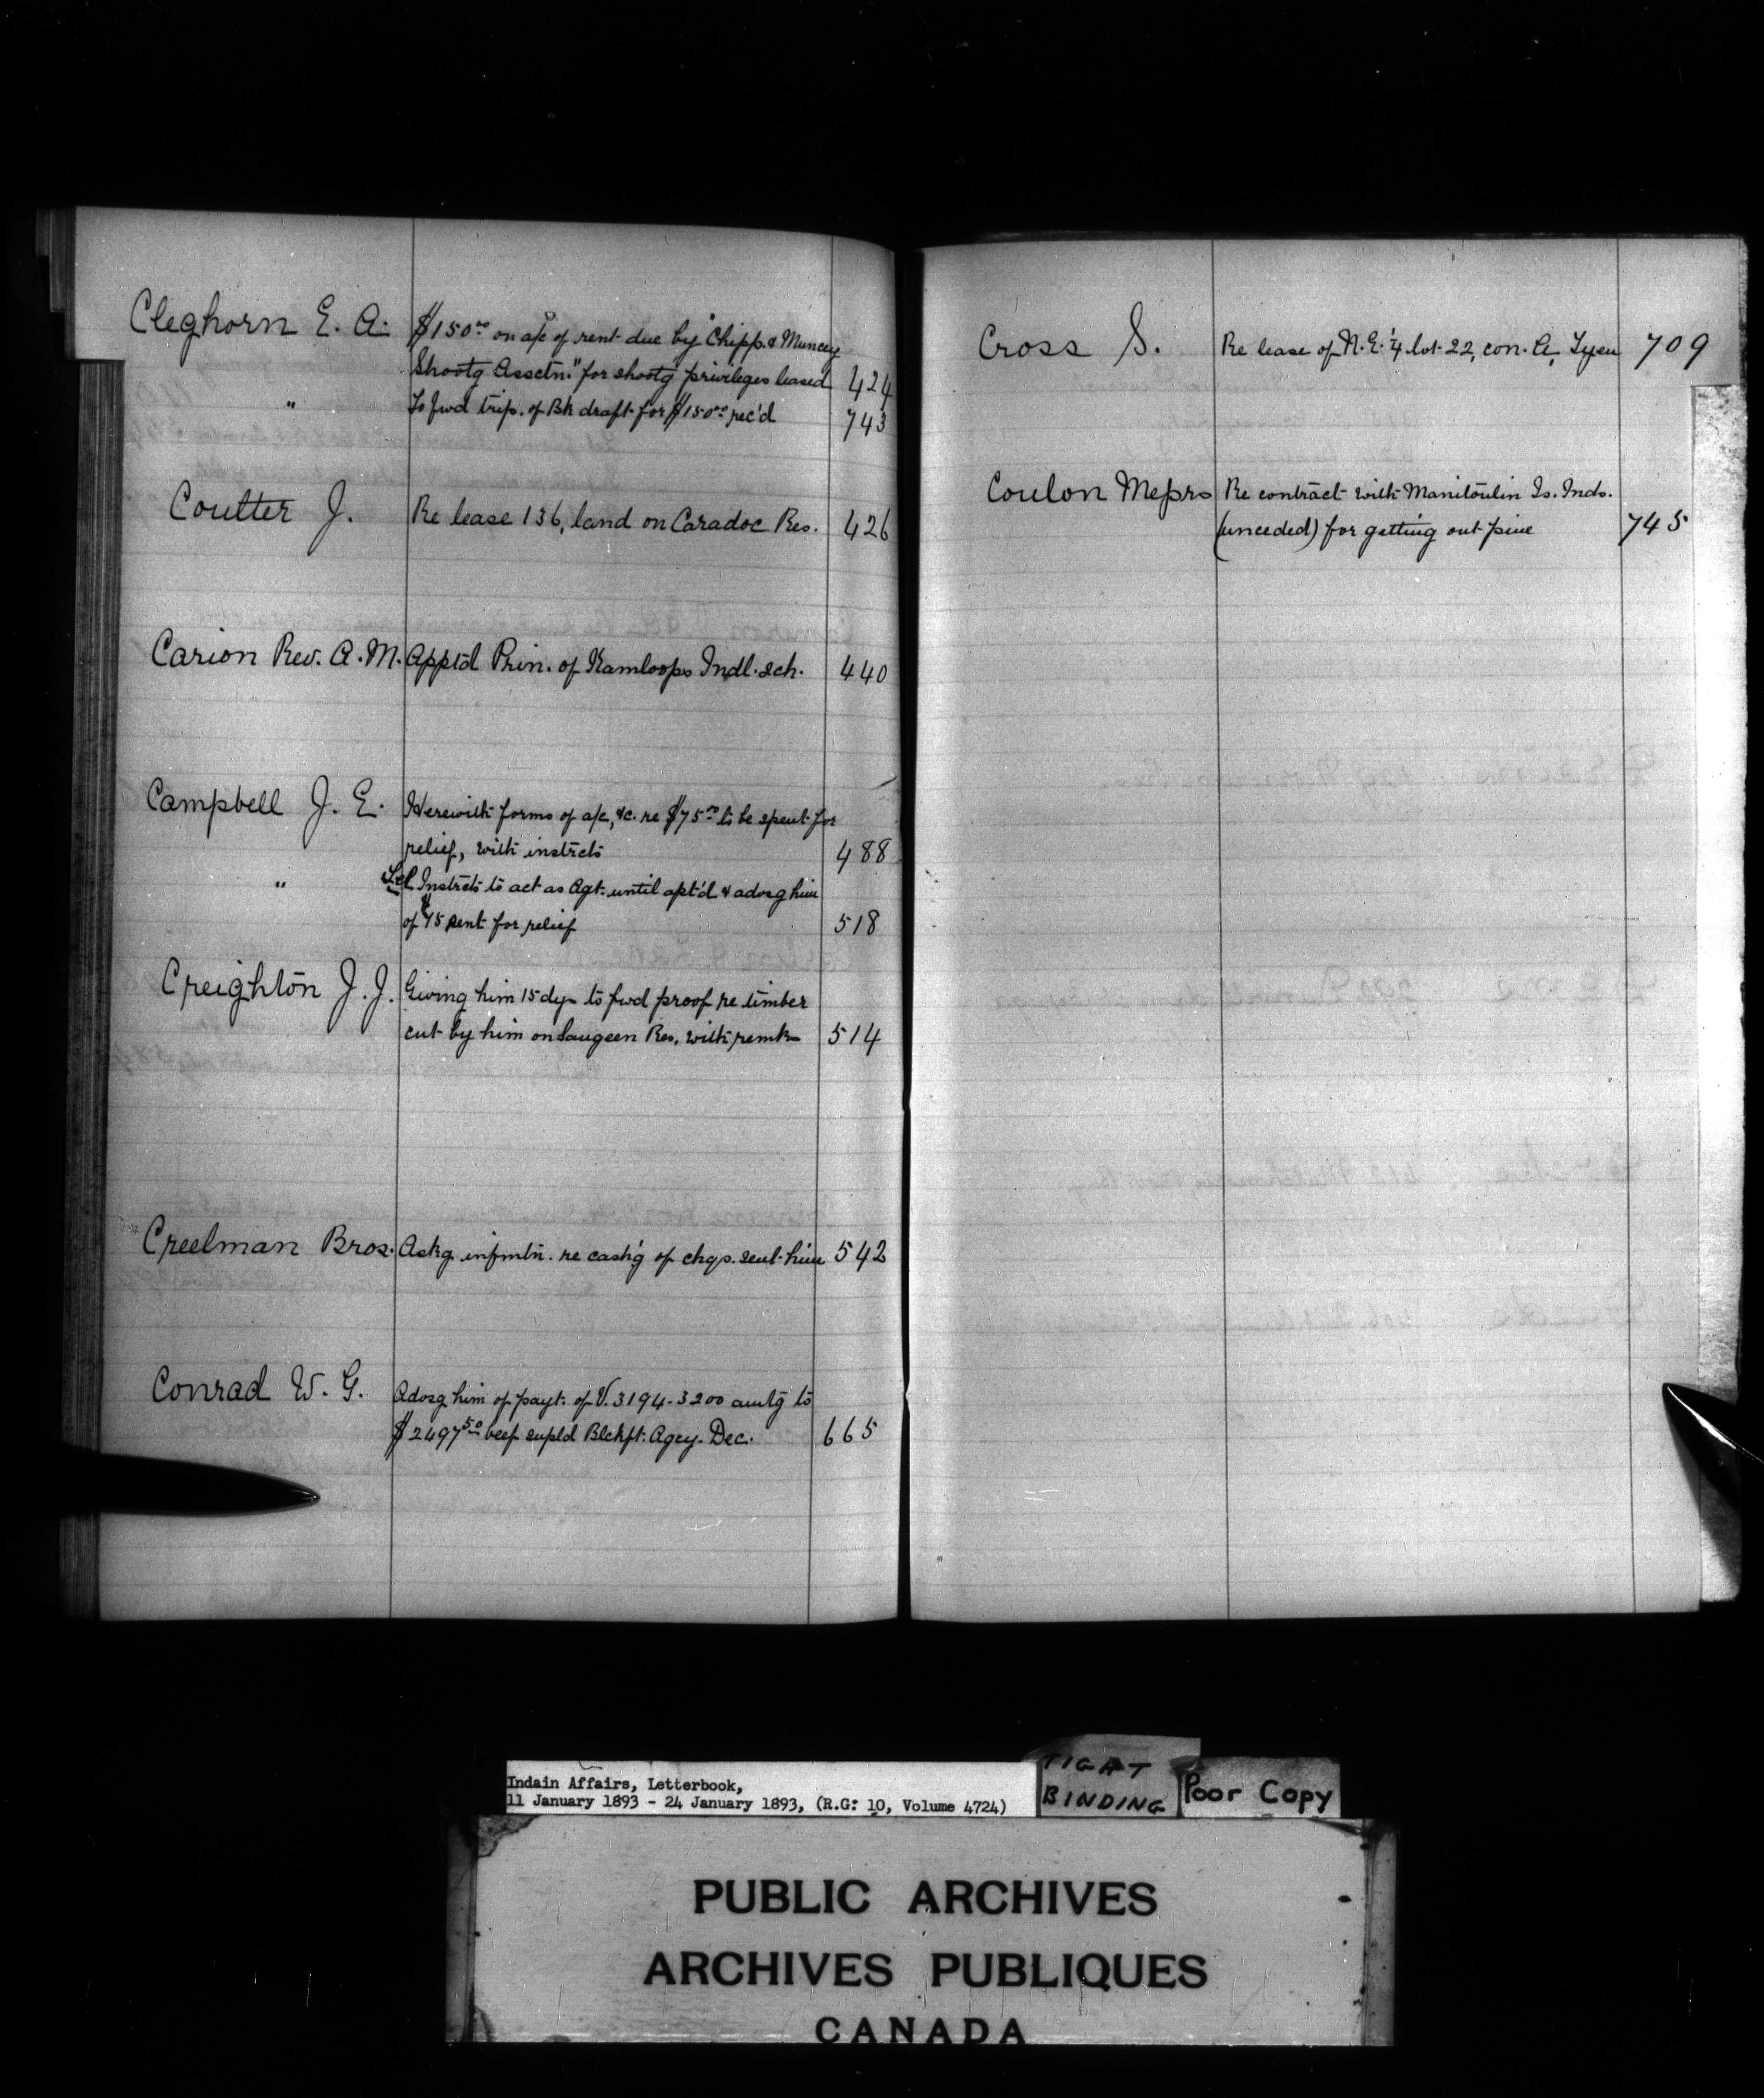 Cleghorn E. A. $150.00 on a/c of rent due by "Chipp. & Muncey
Shootg Assctn." for shootg privileges leased 424
" To fwd trip. of Bk draft for $150.00 rec'd 743
Coulter J. Re lease 136, land on Caradoc Res. 426
Carion Rev. A. M. Apptd Prin. of Kamloops Indl. sch. 440
Campbell J. E. Herewith forms of a/c, &c. re $75.00 to be spent for
relief, with instrcts 488
" Tel Instrcts to act as Agt. until apt'd & advsg him
of $75 sent for relief 518
Creighton J. J. Giving him 15 dys to fwd proof re timber
cut by him on Saugeen Res. with remks 514
Creelman Bros. Askg infmtn. re cash'g of chqs. sent him 542
Conrad W. G. Advsg him of payt. of V. 3194-3200 amtg to
$2497.50 beef supld Blckft. Agcy. Dec. 665
Cross S. Re lease of N.E. ¼ lot 22, con. A, 709
Coulon Messrs Re contract with Manitoulin Is. Inds.
(unceded) for getting out pine 745
Indain Affairs, Letterbook,
11 January 1893 - 24 January 1893, (R.G: 10, Volume 4724)
TIGHT
BINDING
Poor Copy
PUBLIC ARCHIVES
ARCHIVES PUBLIQUES
CANADA